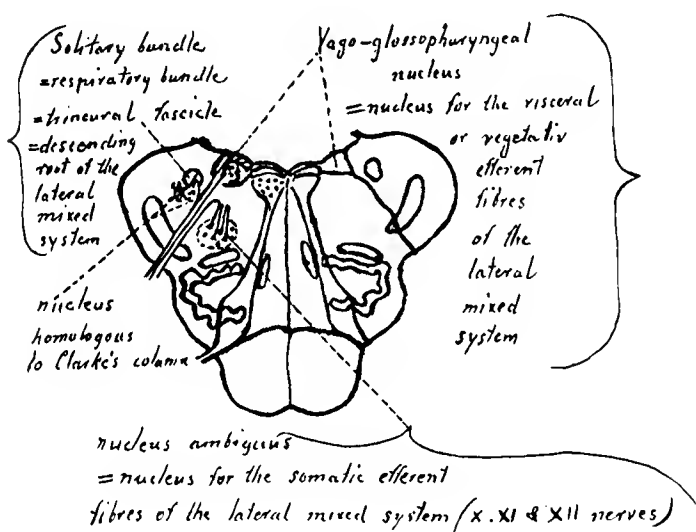 Solitary bundle
=respiratory bundle
=trineural fascicle
=descending
root of the
lateral
mixed
system
Vago-glossopharyngeal
nucleus
=nucleus for the visceral
or vegetativ
efferent
fibres
of the
lateral
mixed
system
nucleus
homologous
to Clarke's column
nucleus ambiguus
=nucleus for the somatic efferent
fibres of the lateral mixed system (X. XI & XII nerves)